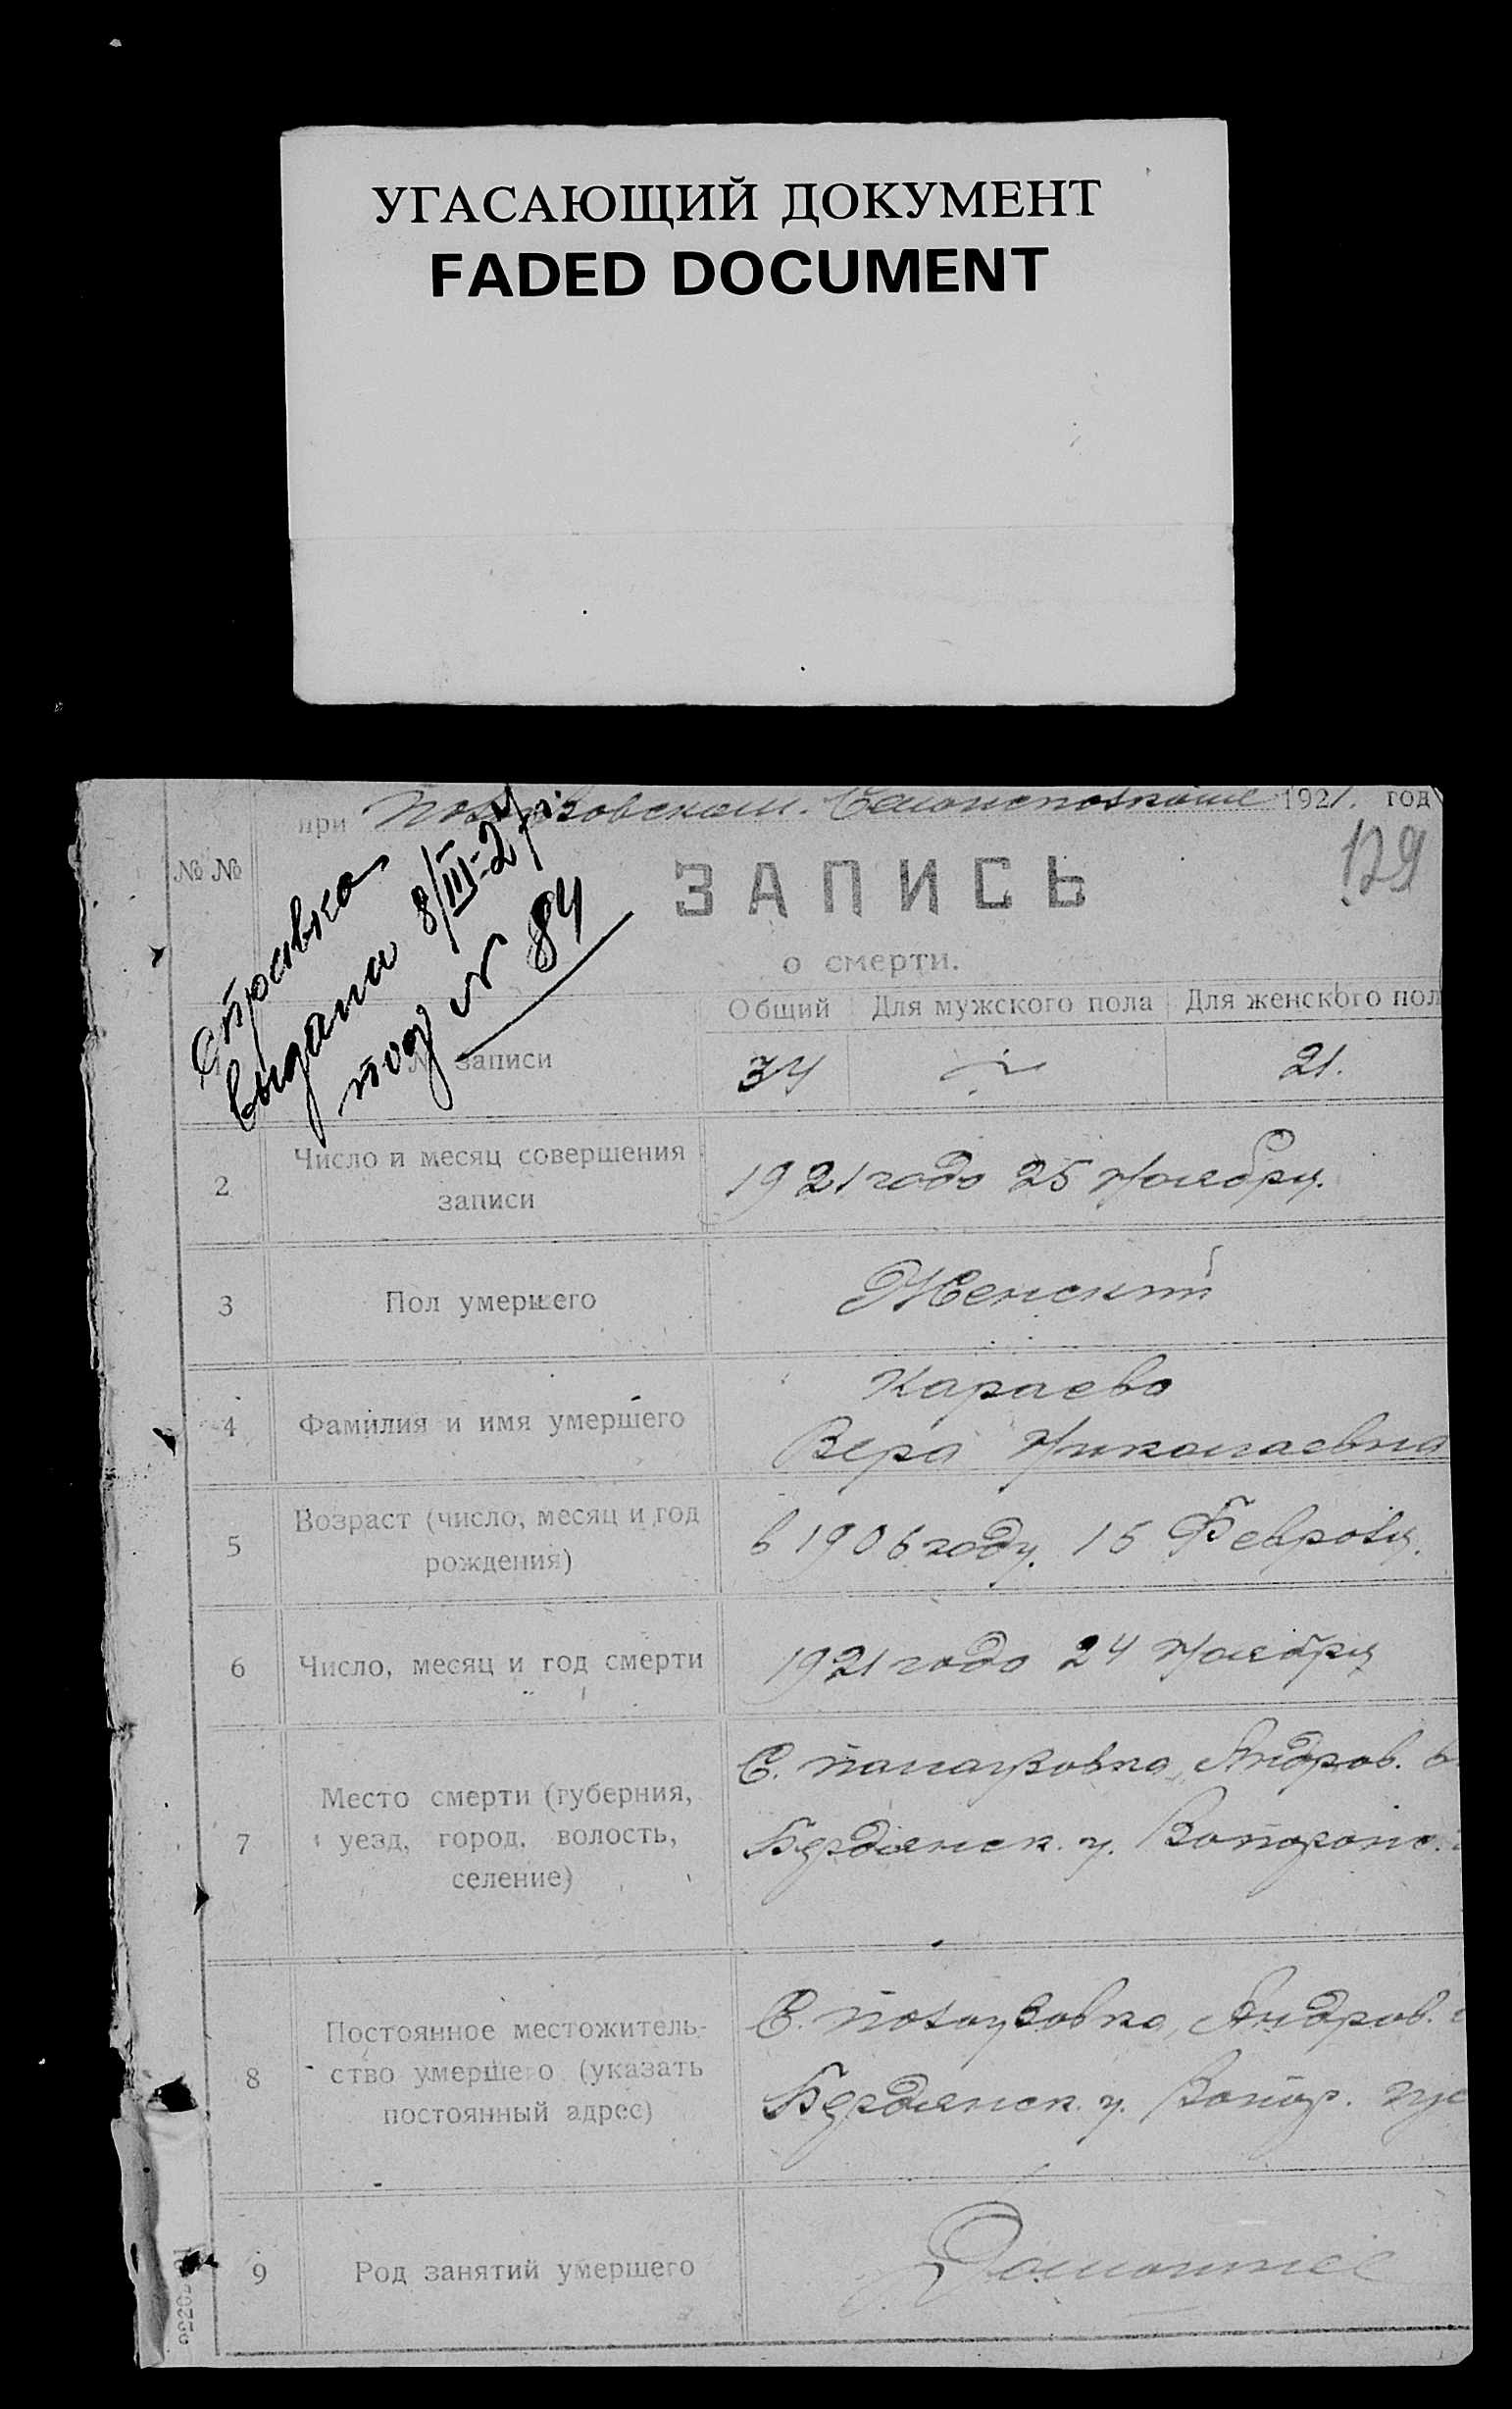 УГАСАЮЩИЙ ДОКУМЕНТ
FADED DOCUMENT
при Полаузовском. Самоисполкоме 1921. год
129
№ №
ЗАПИСЬ
о смерти.
справка
выдана 8/III-24 г.
под № 84
Общий Для мужского пола Для женского пол
№ записи 34 21.
2 Число и месяц совершения
записи
1921 года 25 Ноября.
3 Пол умершего Женский
4 Фамилия и имя умершего
Караева
Вера Николаевна
5 Возраст (число, месяц и год
рождения)
в 1906 году. 15 Февраля.
6 Число, месяц и год смерти 1921 года 24 Ноября
7 Место смерти (губерния,
уезд, город, волость,
селение)
С. Палаузовка, Андров. в
Бердянск. у. Запорож.
8 Постоянное местожитель-
ство умершего (указать
постоянный адрес)
С. Полоузовка, Андров.
Бердянск. у. Запор. гу
9 Род занятий умершего Домашнее